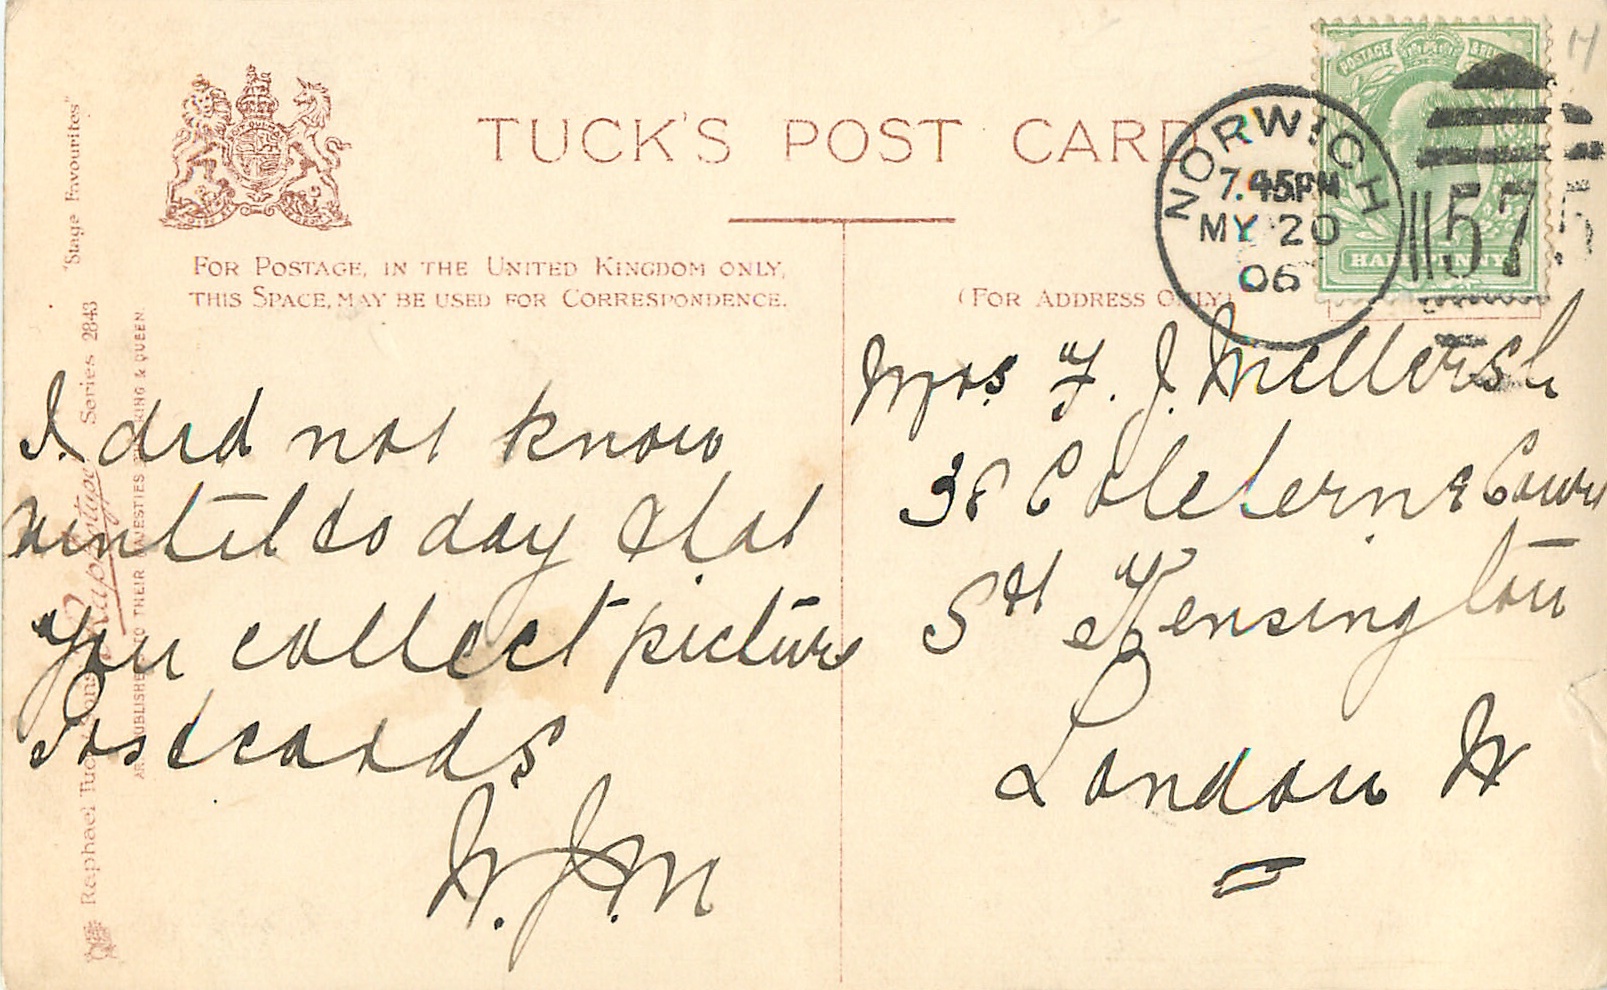 TUCK'S POST CARD
FOR POSTAGE, IN THE UNITED KINGDOM ONLY,
THIS SPACE, MAY BE USED FOR CORRESPONDENCE.
(FOR ADDRESS ONLY)
POSTAGE &
HALFPENNY
NORWICH
7.45PM
MY 20
06
575
H
I did not know
until to day that
you collect picture
Postcards
W. J. M
Mrs F. J. Mellersh
38 Coleherne Court
Sth Kensington
London W
"Stage Favourites"
Raphael Tuck Sons Rapholtype Series 2843
PUBLISHE TO THEIR MAJESTIES KING & QUEEN.